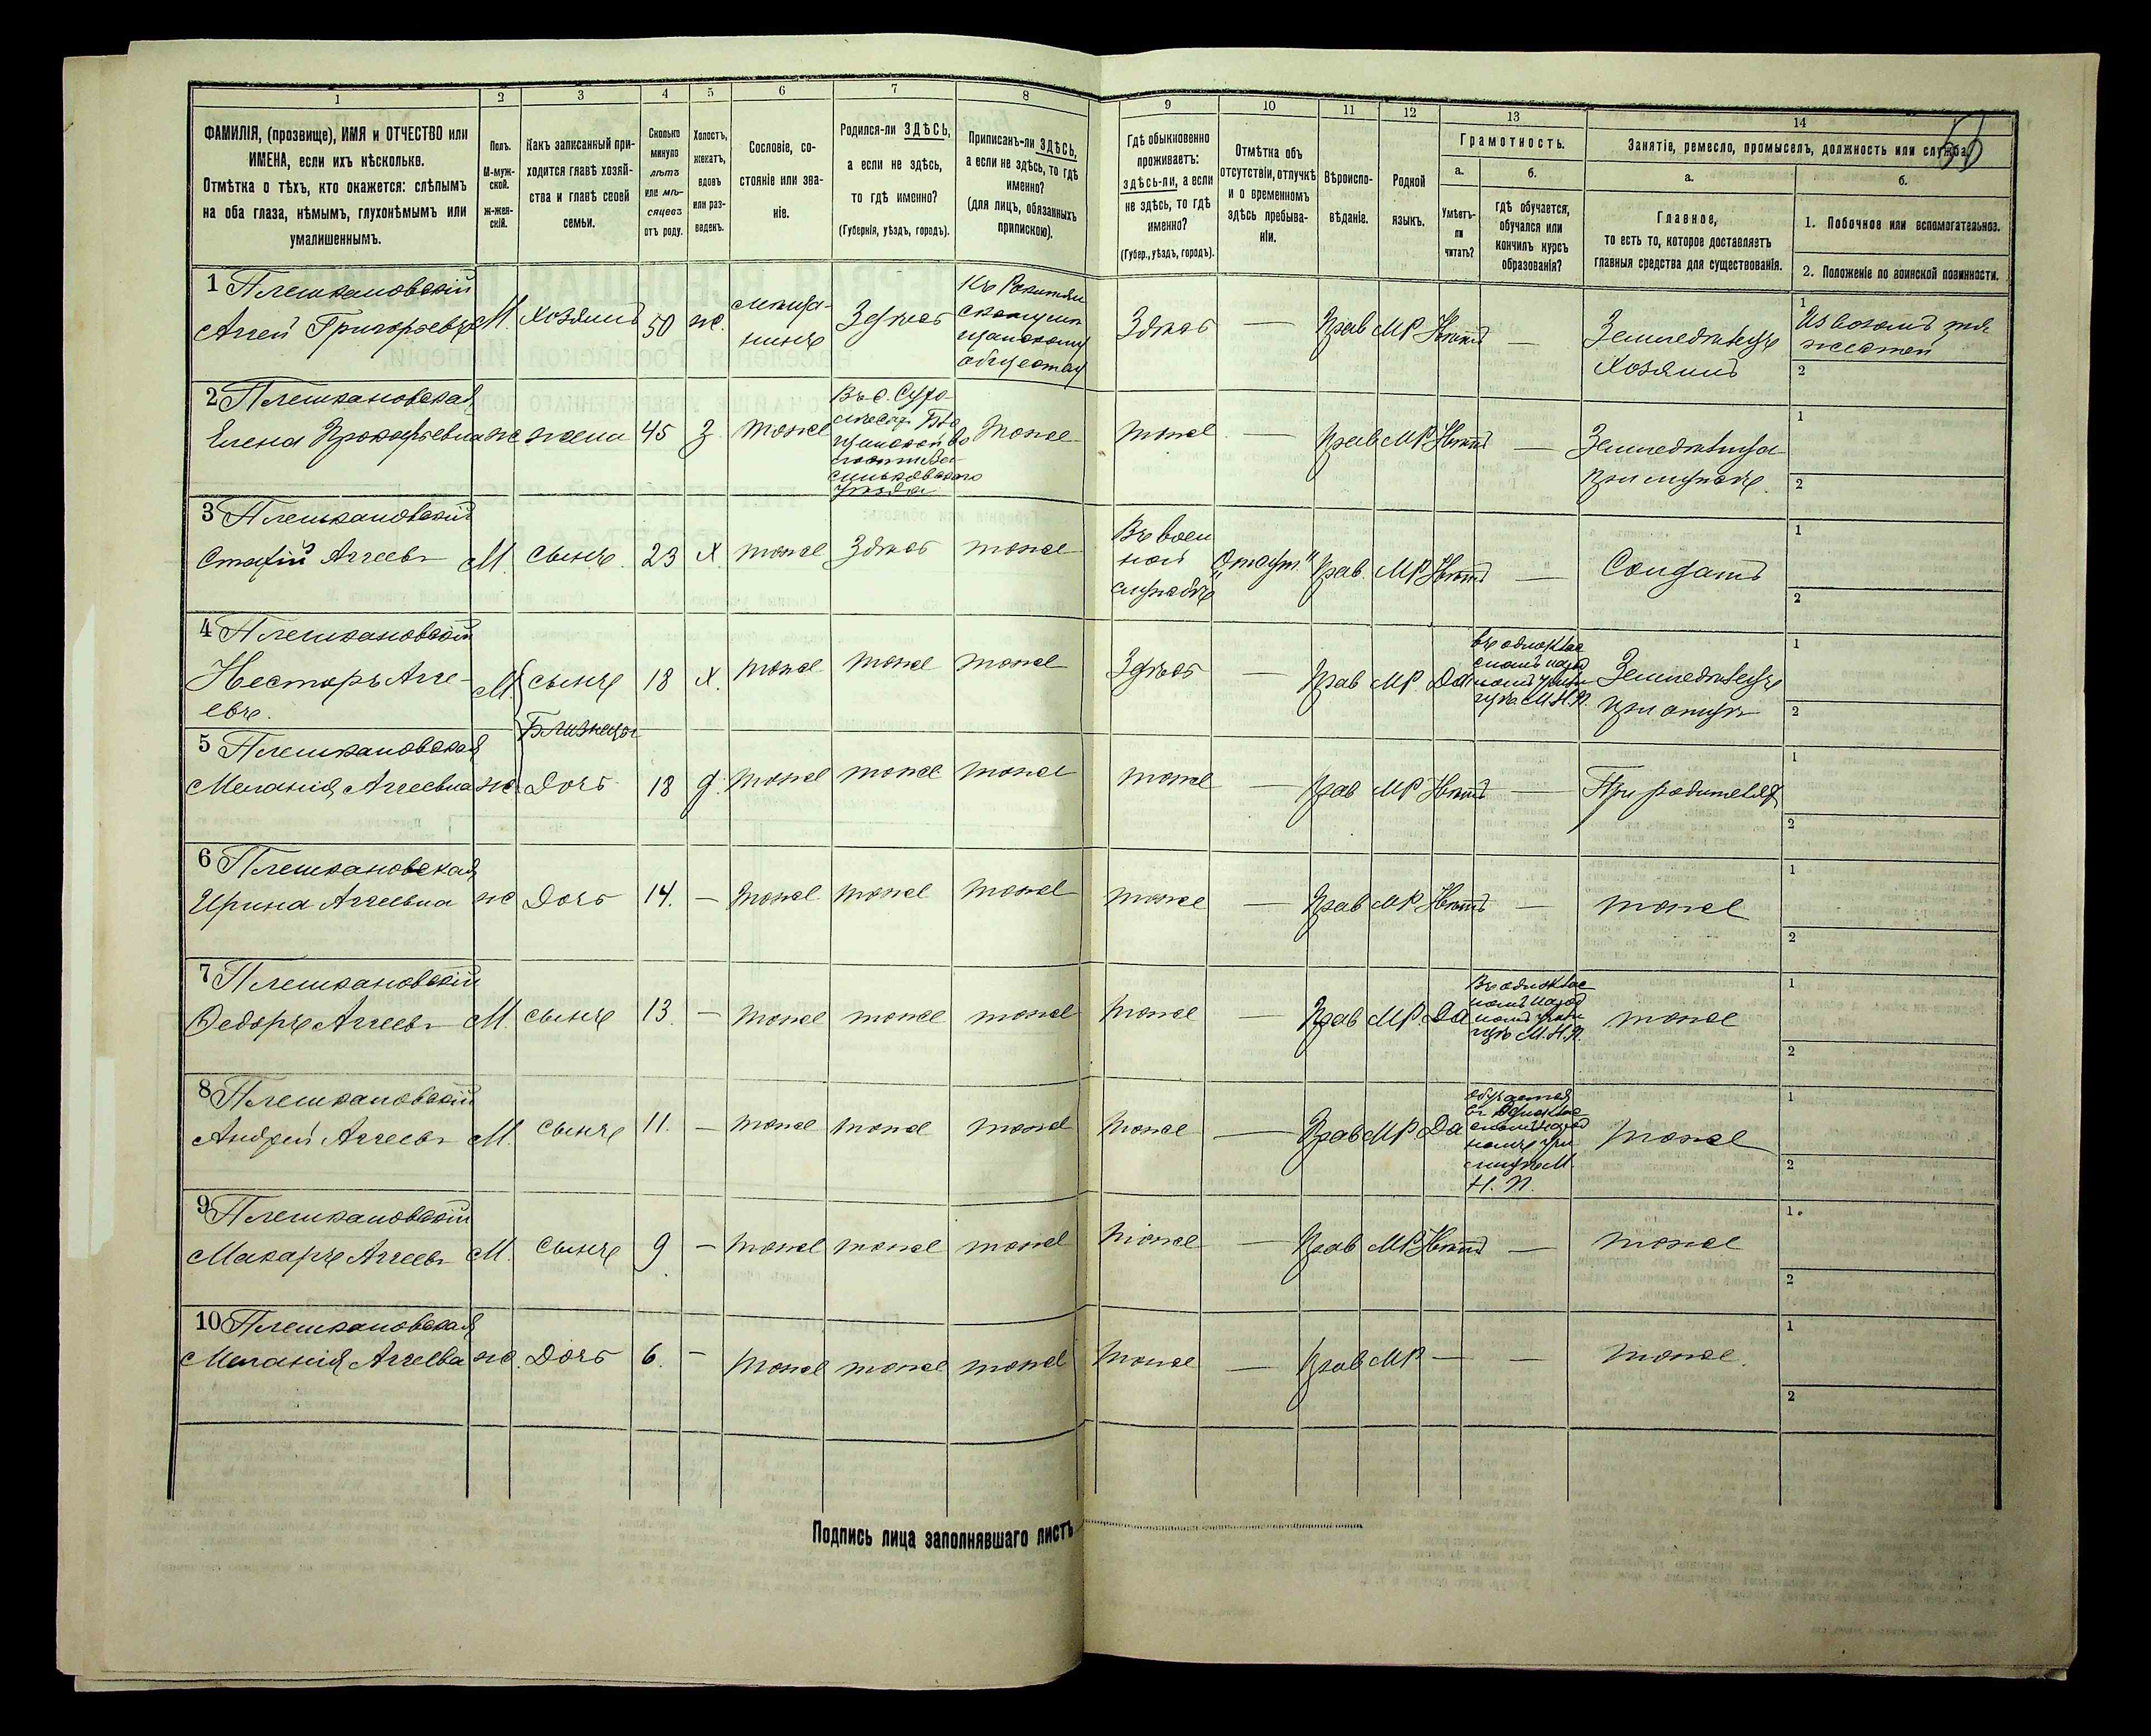 1
2
3
4
5
6
7
8
ФАМИЛІЯ, (прозвище), ИМЯ и ОТЧЕСТВО или
ИМЕНА, если ихъ нѣсколько.
Отмѣтка о тѣхъ, кто окажется: слѣпымъ
на оба глаза, нѣмымъ, глухонѣмымъ или
умалишеннымъ.
Полъ.
М-муж-
ской.
Ж-жен-
скій.
Какъ записанный при-
ходится главѣ хозяй-
ства и главѣ своей
семьи.
Сколько
минуло
лѣтъ
или мѣ-
сяцевъ
отъ роду.
Холостъ,
женатъ,
вдовъ
или раз-
веденъ.
Сословіе, со-
стояніе или зва-
ніе.
Родился-ли ЗДѢСЬ,
а если не здѣсь,
то гдѣ именно?
(Губернія, уѣздъ, городъ).
Приписанъ-ли ЗДѢСЬ,
а если не здѣсь, то гдѣ
именно?
(для лицъ, обязанныхъ
припискою).
9
10
11
12
13
14
Гдѣ обыкновенно
проживаетъ:
здѣсь-ли, а если
не здѣсь, то гдѣ
именно?
(Губер., уѣздъ, городъ).
Отмѣтка объ
отсутствіи, отлучкѣ
и о временномъ
здѣсь пребыва-
ніи.
Вѣроиспо-
вѣданіе.
Родной
языкъ.
Грамотность.
а.
б.
Умѣетъ-
ли
читать?
гдѣ обучается,
обучался или
кончилъ курсъ
образованія?
Занятіе, ремесло, промыселъ, должность или служба.
а.
б.
Главное,
то есть то, которое доставляетъ
главныя средства для существованія.
1. Побочное или вспомогательное.
2. Положеніе по воинской повинности.
1 Плешкановскій
Аггей Григорьевъ М. Хозяинъ 50 ж. мѣща-
нинъ Здѣсь
обществу
Здѣсь — Прав МР Нѣтъ — Земледѣлецъ
Хозяинъ
1
2
2 Плешкановская
Елена Прокофьевна ж жена 45 З тоже
уѣзда
тоже
тоже — Прав МР Нѣтъ — Земледѣлица
при мужѣ.
1
2
3 Плешкановскій
Аггеевъ М. сынъ. 23 Х тоже Здѣсь тоже
Въ воен
ной
службѣ "Отсут." Прав. МР Нѣтъ — Солдатъ
1
2
4 Плешкановскій
Несторъ Агге-
евъ. М сынъ 18 Х. тоже тоже тоже
Близнецы
Здѣсь — Прав МР. Да
въ однокла
сномъ народ
номъ учили
щѣ М.Н.П.
Земледѣлецъ
при отцѣ
1
2
5 Плешкановская
Меланія Аггеевна ж Дочь 18 д. тоже тоже тоже
тоже — Прав МР Нѣтъ — При родителяхъ
1
2
6 Плешкановская
Ирина Аггеевна ж Дочь 14. — тоже тоже тоже
тоже — Прав МР Нѣтъ — тоже
1
2
7 Плешкановскій
Ѳедоръ Аггеевъ М. сынъ 13. — тоже тоже тоже
тоже — Прав МР. Да
Въ однокла
номъ народ
номъ учили
щѣ М.Н.П.
тоже
1
2
8 Плешкановскій
Андрей Аггеевъ М. сынъ 11. — тоже тоже тоже
тоже — Прав МР Да
обучается
въ однокла
сномъ народ
номъ учи
лищѣ М.
Н. П.
тоже
1
2
9 Плешкановскій
Макаръ Аггеевъ М. сынъ 9 — тоже тоже тоже
тоже — Прав МР Нѣтъ — тоже
1
2
10 Плешкановская
Меланія Аггеева ж. Дочь 6. — тоже тоже тоже
тоже — Прав МР — — тоже.
1
2
Подпись лица заполнявшаго листъ